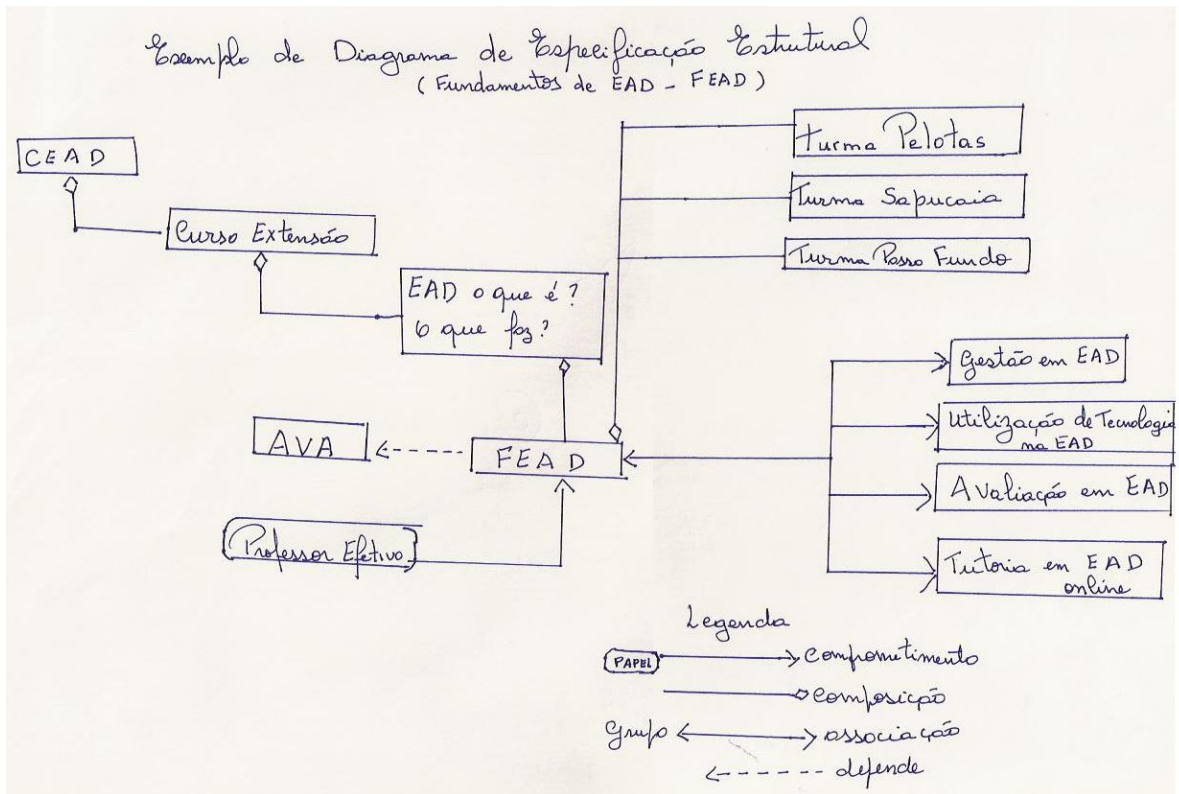 Exemplo de Diagrama de Especificação Estrutural
(Fundamentos de EAD - FEAD)
CEAD
Curso Extensão
EAD o que é?
O que faz?
AVA
FEAD
Professor Efetivo
Turma Pelotas
Turma Sapucaia
Turma Passo Fundo
Gestão em EAD
Utilização de Tecnologia
na EAD
Avaliação em EAD
Tutoria em EAD
online
Legenda
PAPEL comprometimento
composição
Grupo associação
depende